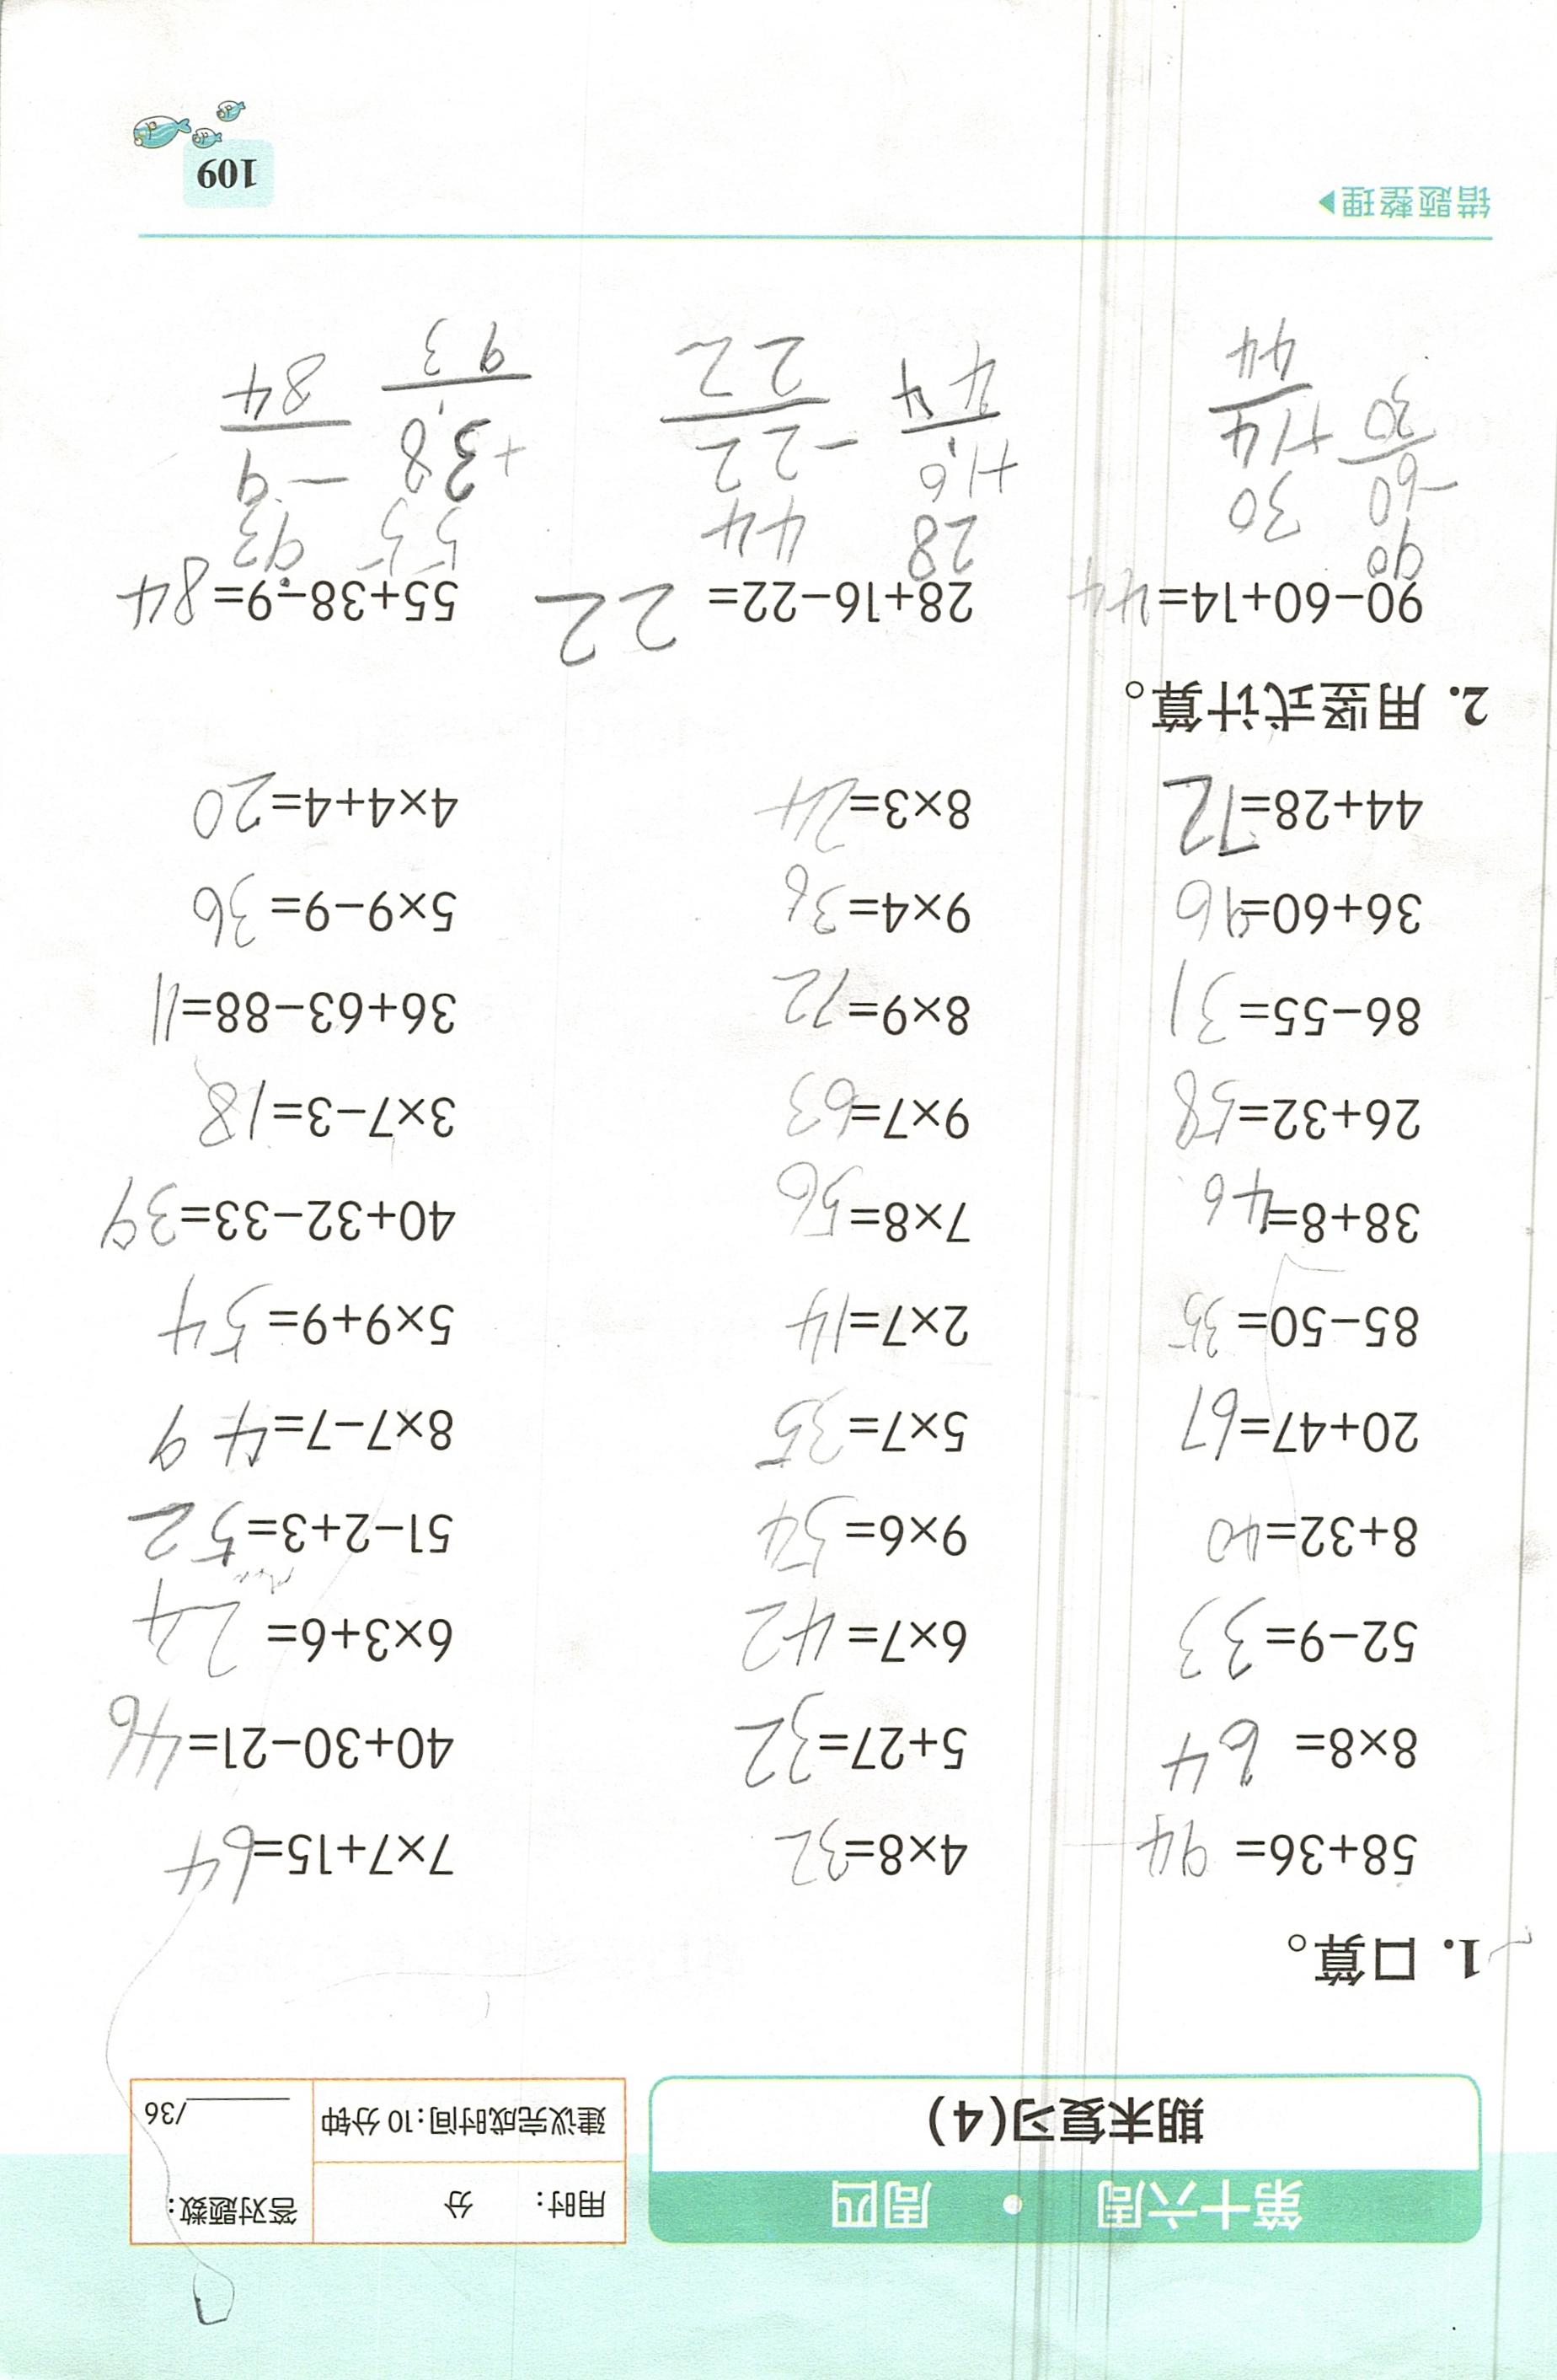 第十六周 · 周四
期末复习(4)
用时: 分
答对题数:
建议完成时间:10分钟
____/36
1. 口算。
58+36= 94 4×8=32 7×7+15=64
8×8= 64 5+27=32 40+30-21=46
52-9=33 6×7=42 6×3+6= 24
8+32=40 9×6=54 51-2+3=52
20+47=67 5×7=35 8×7-7=49
85-50=35 2×7=14 5×9+9=54
38+8=46 7×8=56 40+32-33=39
26+32=58 9×7=63 3×7-3=18
86-55=31 8×9=72 36+63-88=11
36+60=96 9×4=36 5×9-9=36
44+28=72 8×3=24 4×4+4=20
2. 用竖式计算。
90-60+14=44 28+16-22= 22 55+38-9=84
90 30 28 44 55 93
-60 +14 +16 -22 +38 -9
30 44 44 22 93 84
错题整理▶
109